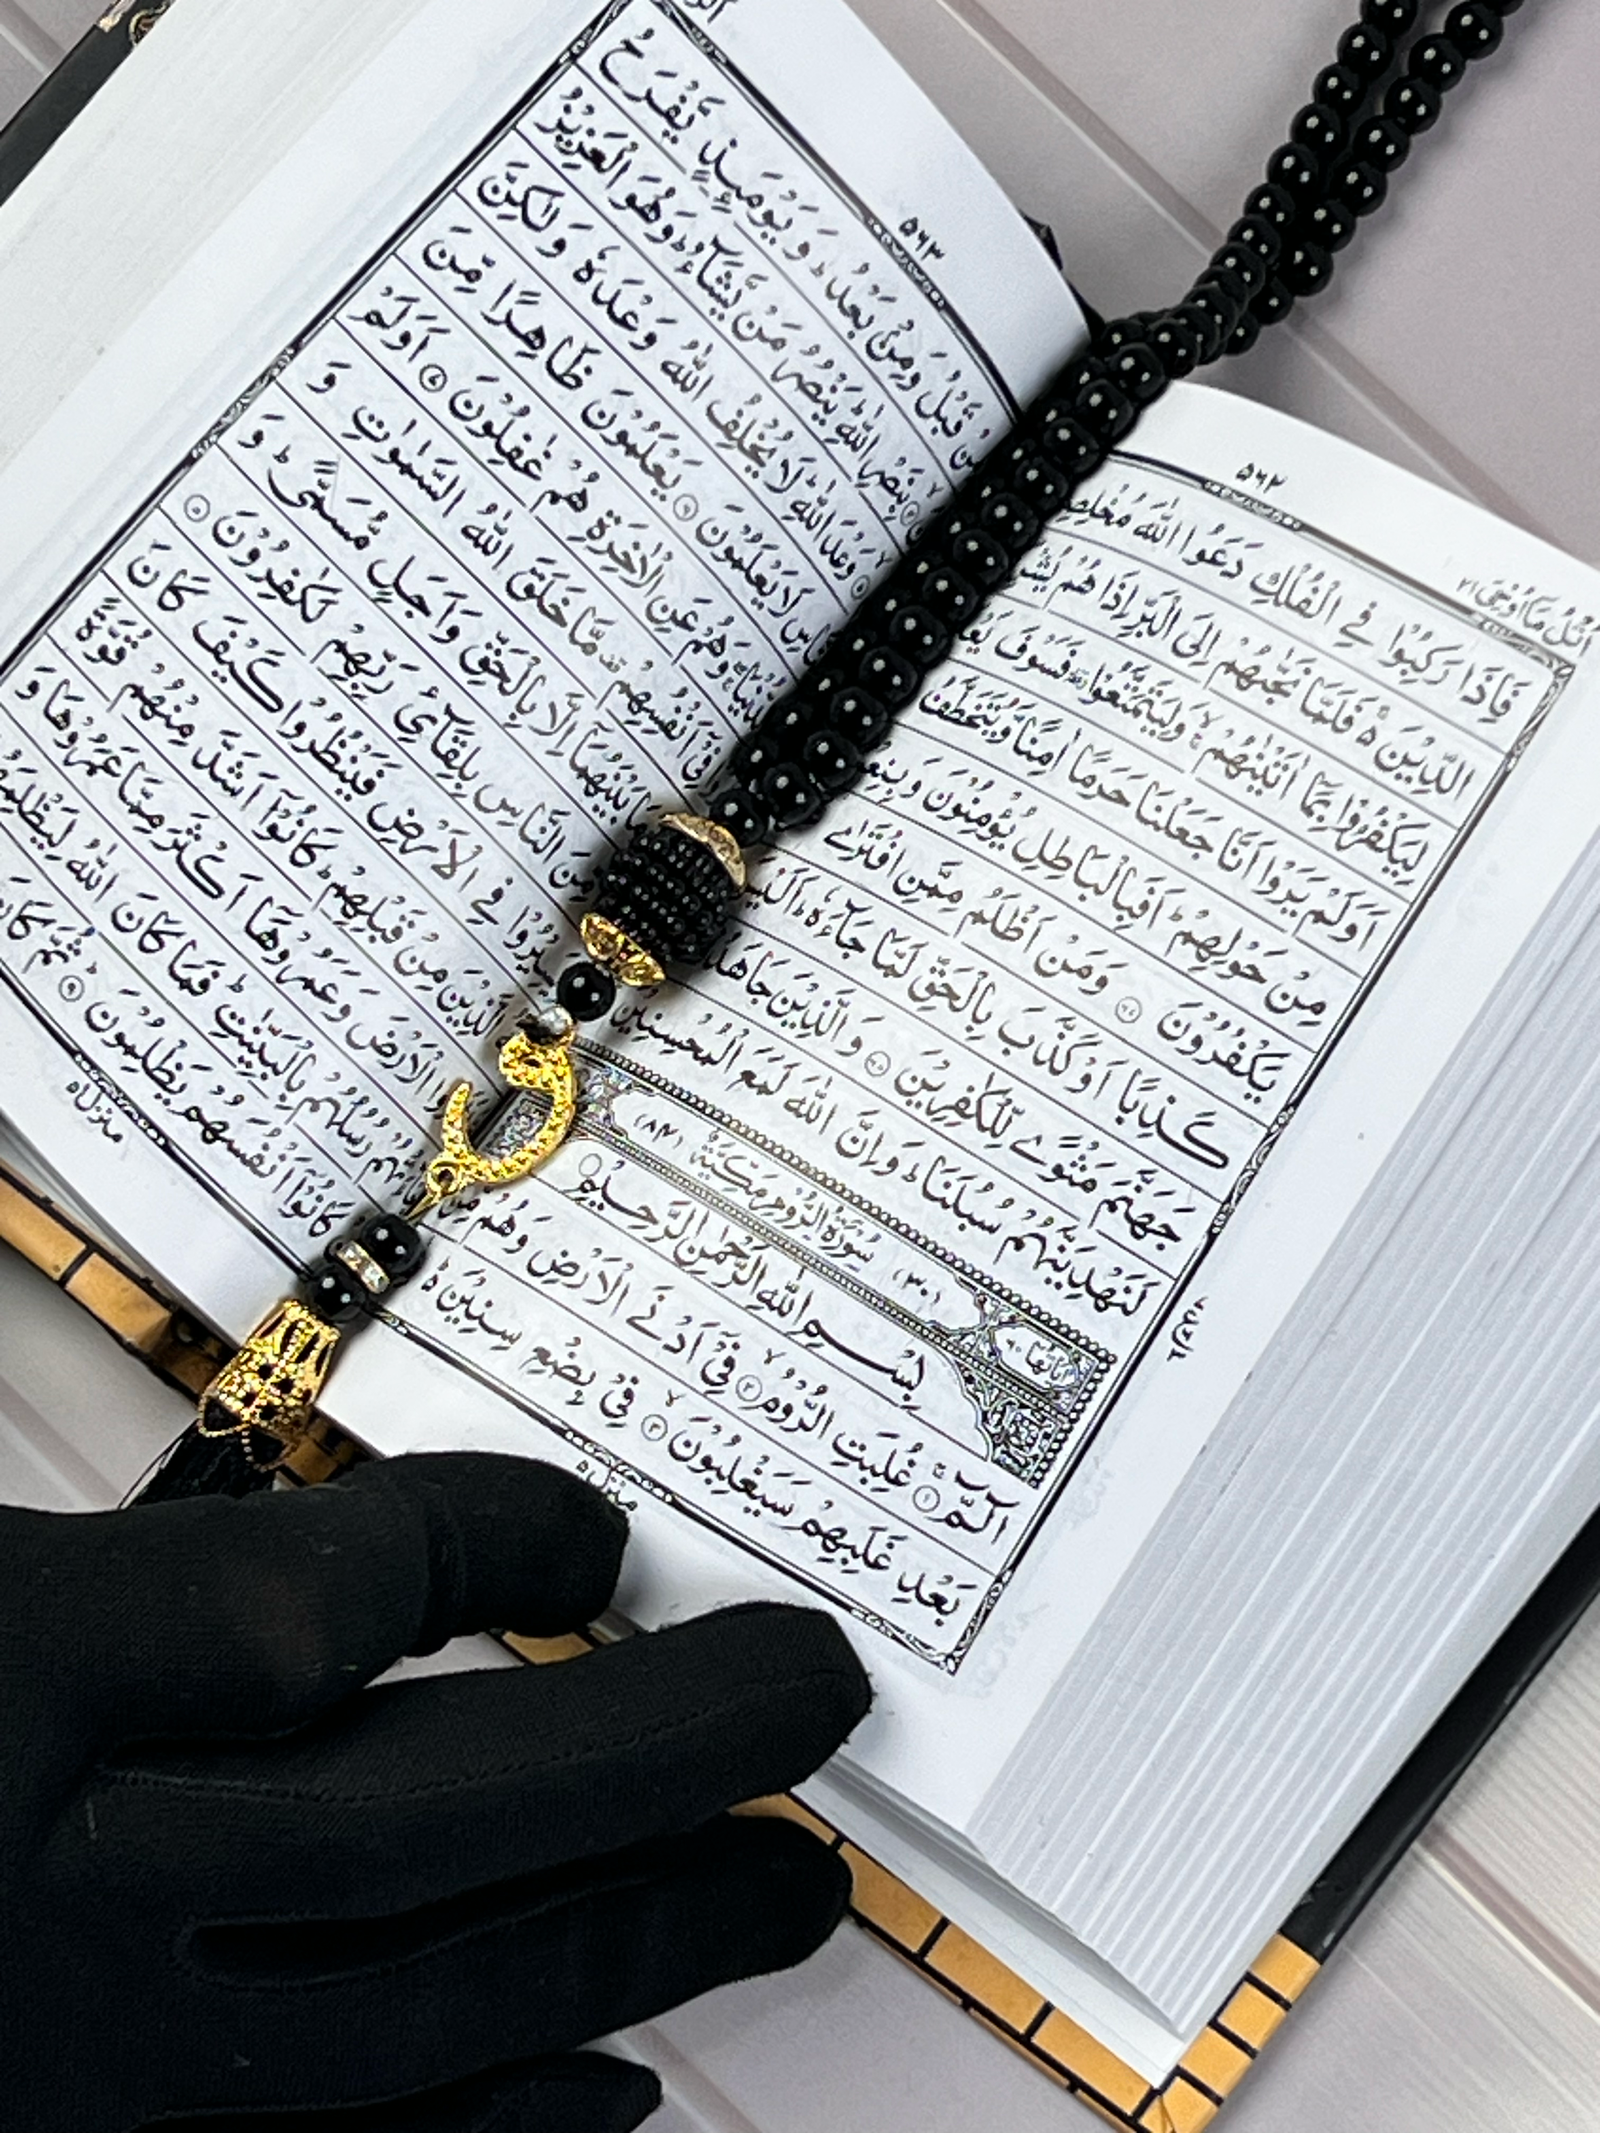 ۵۶۲
اُتْلُ مَاۤ اُوْحِیَ ۲۱
فَاِذَا رَكِبُوْا فِی الْفُلْكِ دَعَوُا اللّٰهَ
الدِّیْنَ ۵ فَلَمَّا نَجّٰىهُمْ اِلَی الْبَرِّ اِذَا هُمْ
لِیَكْفُرُوْا بِمَاۤ اٰتَیْنٰهُمْ ۙ وَلِیَتَمَتَّعُوْا ۥ فَسَوْفَ
اَوَلَمْ یَرَوْا اَنَّا جَعَلْنَا حَرَمًا اٰمِنًا وَّیُتَخَطَّفُ
مِنْ حَوْلِهِمْ ؕ اَفَبِالْبَاطِلِ یُؤْمِنُوْنَ
یَكْفُرُوْنَ ۶۷ وَمَنْ اَظْلَمُ مِمَّنِ افْتَرٰی
كَذِبًا اَوْ كَذَّبَ بِالْحَقِّ لَمَّا جَآءَهٗ ؕ
جَهَنَّمَ مَثْوًی لِّلْكٰفِرِیْنَ ۶۸ وَالَّذِیْنَ جَاهَدُ
لَنَهْدِیَنَّهُمْ سُبُلَنَا ؕ وَاِنَّ اللّٰهَ لَمَعَ الْمُحْسِنِیْنَ
اٰیَاتُهَا ۶۰ (۳۰) سُوْرَةُ الرُّوْمِ مَكِّیَّةٌ (۸۴)
بِسْمِ اللّٰهِ الرَّحْمٰنِ الرَّحِیْمِ
الٓمّٓ ۱ غُلِبَتِ الرُّوْمُ ۲ فِیْۤ اَدْنَی الْاَرْضِ وَهُمْ مِّنْ
بَعْدِ غَلَبِهِمْ سَیَغْلِبُوْنَ ۳ فِیْ بِضْعِ سِنِیْنَ ؕ
منزل ۵
۵۶۳
قَبْلُ وَمِنْ بَعْدُ ؕ وَیَوْمَىِٕذٍ یَّفْرَحُ
بِنَصْرِ اللّٰهِ ؕ یَنْصُرُ مَنْ یَّشَآءُ ؕ وَهُوَ الْعَزِیْزُ
۵ وَعْدَ اللّٰهِ ؕ لَا یُخْلِفُ اللّٰهُ وَعْدَهٗ وَلٰكِنَّ
لَا یَعْلَمُوْنَ ۶ یَعْلَمُوْنَ ظَاهِرًا مِّنَ
وَهُمْ عَنِ الْاٰخِرَةِ هُمْ غٰفِلُوْنَ ۷ اَوَلَمْ
فِیْۤ اَنْفُسِهِمْ ۥ مَا خَلَقَ اللّٰهُ السَّمٰوٰتِ وَ
بَیْنَهُمَاۤ اِلَّا بِالْحَقِّ وَاَجَلٍ مُّسَمًّی ؕ وَ
مِّنَ النَّاسِ بِلِقَآئِ رَبِّهِمْ لَكٰفِرُوْنَ ۸
یَسِیْرُوْا فِی الْاَرْضِ فَیَنْظُرُوْا كَیْفَ كَانَ
الَّذِیْنَ مِنْ قَبْلِهِمْ ؕ كَانُوْۤا اَشَدَّ مِنْهُمْ قُوَّةً
الْاَرْضَ وَعَمَرُوْهَاۤ اَكْثَرَ مِمَّا عَمَرُوْهَا وَ
رُسُلُهُمْ بِالْبَیِّنٰتِ ؕ فَمَا كَانَ اللّٰهُ لِیَظْلِمَ
كَانُوْۤا اَنْفُسَهُمْ یَظْلِمُوْنَ ۹ ؕ ثُمَّ كَانَ
منزل ۵